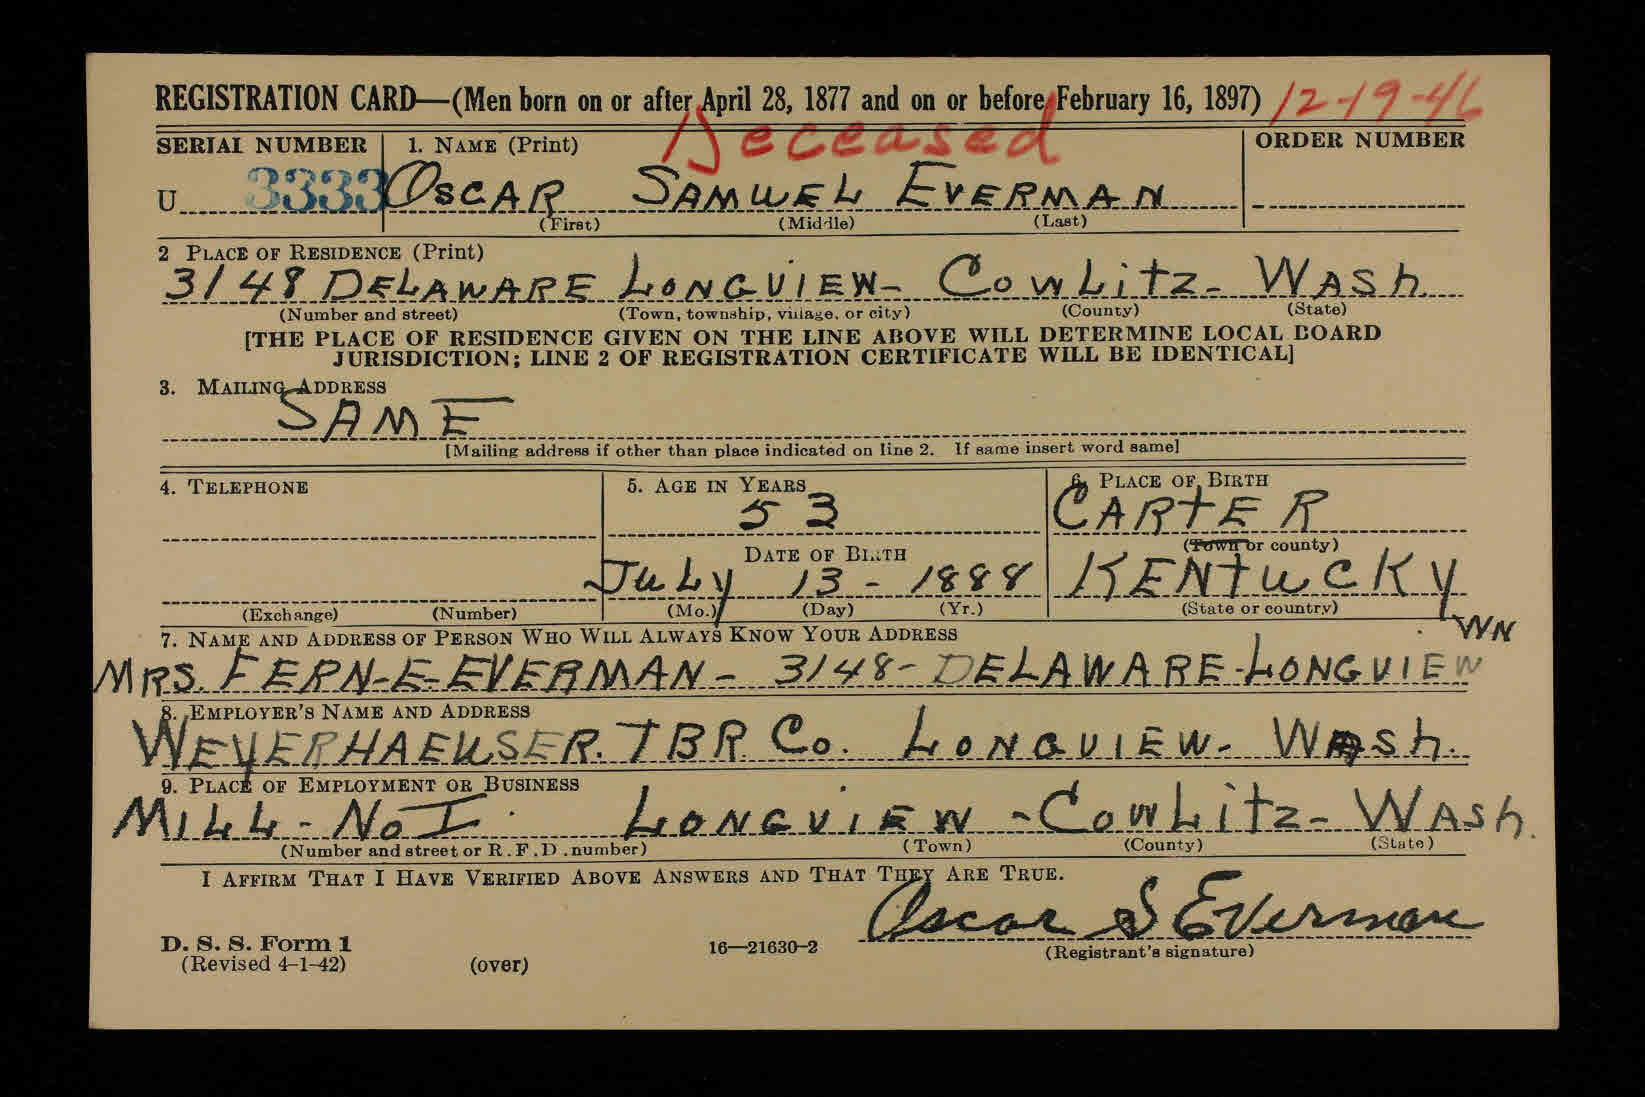 REGISTRATION CARD—(Men born on or after April 28, 1877 and on or before February 16, 1897) 12-19-46
Deceased
SERIAL NUMBER 1. NAME (Print) ORDER NUMBER
U 3333 OSCAR SAMUEL EVERMAN
(First) (Middle) (Last)
2 PLACE OF RESIDENCE (Print)
3148 DELAWARE LONGVIEW- COWLitz- WASh.
(Number and street) (Town, township, village, or city) (County) (State)
[THE PLACE OF RESIDENCE GIVEN ON THE LINE ABOVE WILL DETERMINE LOCAL BOARD
JURISDICTION; LINE 2 OF REGISTRATION CERTIFICATE WILL BE IDENTICAL]
3. MAILING ADDRESS
SAME
[Mailing address if other than place indicated on line 2. If same insert word same]
4. TELEPHONE 5. AGE IN YEARS 6. PLACE OF BIRTH
53 CARtER
DATE OF BIRTH (Town or county)
JuLy 13 - 1888 KENtucKy
(Exchange) (Number) (Mo.) (Day) (Yr.) (State or country)
7. NAME AND ADDRESS OF PERSON WHO WILL ALWAYS KNOW YOUR ADDRESS WN
MRS. FERN-E-EVERMAN - 3148- DELAWARE-LONGVIEW
8. EMPLOYER'S NAME AND ADDRESS
WEYERHAEUSER. TBR. Co. LONGVIEW- WASh.
9. PLACE OF EMPLOYMENT OR BUSINESS
MILL - No I. LONGVIEW - COWLitz- WASh.
(Number and street or R.F.D. number) (Town) (County) (State)
I AFFIRM THAT I HAVE VERIFIED ABOVE ANSWERS AND THAT THEY ARE TRUE.
Oscar S Everman
D. S. S. Form 1 16—21630-2 (Registrant's signature)
(Revised 4-1-42) (over)